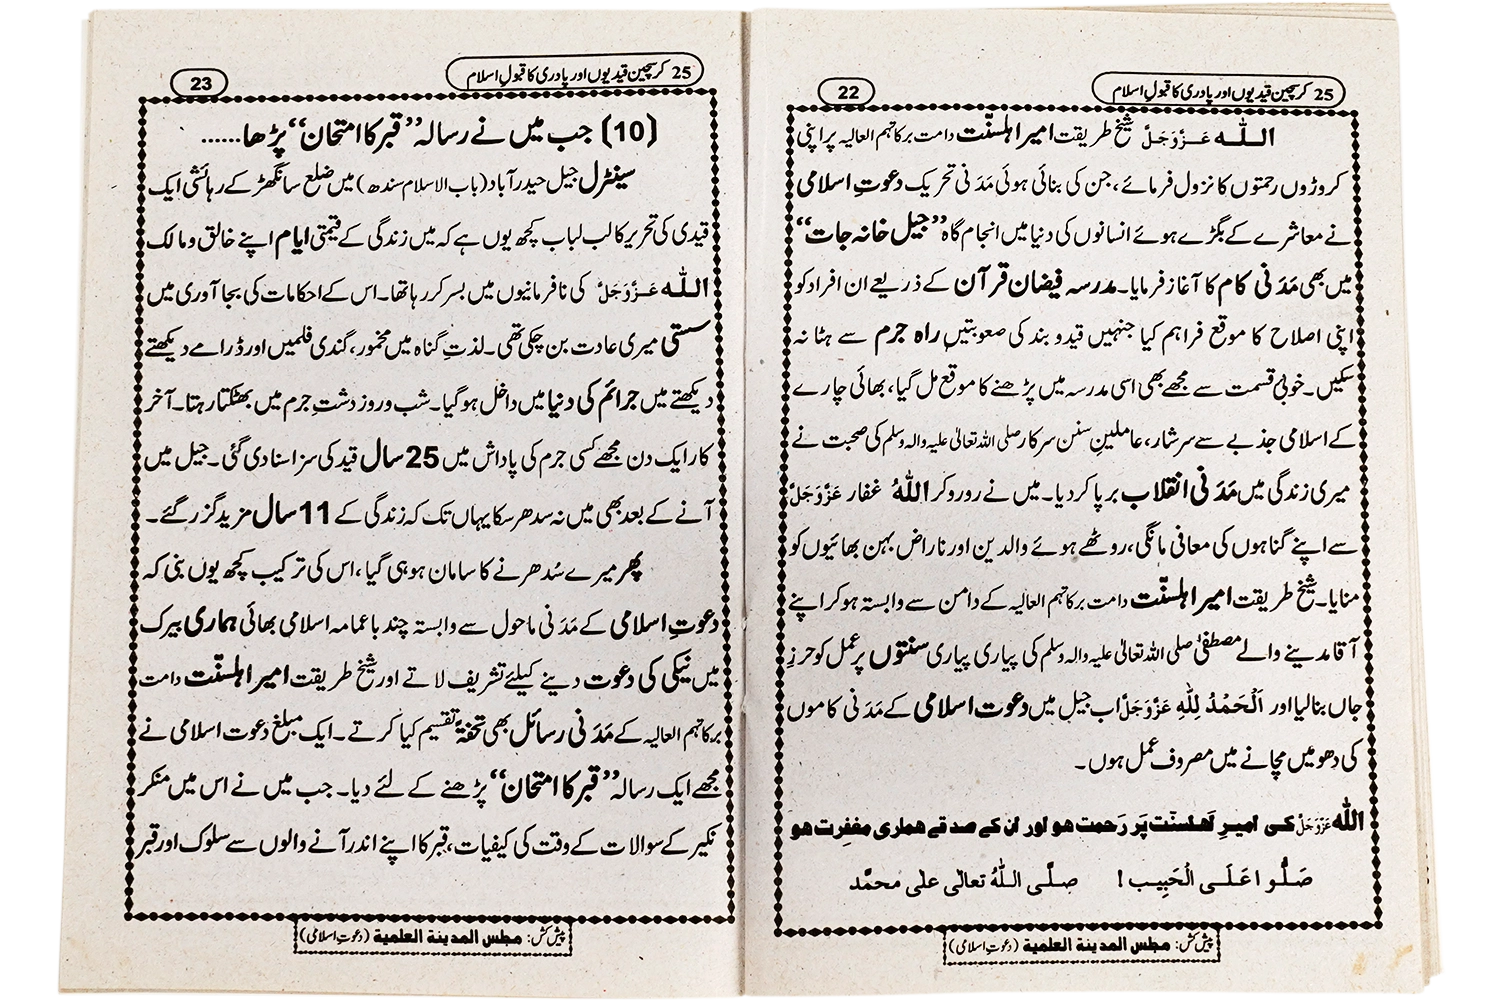 25 کرسچین قیدیوں اور پادری کا قبولِ اسلام
22
اللہ عَزَّوَجَلَّ شیخِ طریقت امیرِ اہلسنّت دامت برکاتہم العالیہ پر اپنی
کروڑوں رحمتوں کا نزول فرمائے، جن کی بنائی ہوئی مَدَنی تحریک دعوتِ اسلامی
نے معاشرے کے بگڑے ہوئے انسانوں کی دنیا میں انجام گاہ ”جیل خانہ جات“
میں بھی مَدَنی کام کا آغاز فرمایا۔ مدرسہ فیضانِ قرآن کے ذریعے ان افراد کو
اپنی اصلاح کا موقع فراہم کیا جنہیں قید و بند کی صعوبتیں راہِ جرم سے ہٹا نہ
سکیں۔ خوبیٔ قسمت سے مجھے بھی اسی مدرسہ میں پڑھنے کا موقع مل گیا، بھائی چارے
کے اسلامی جذبے سے سرشار، عاملینِ سننِ سرکار صلی اللہ تعالیٰ علیہ والہ وسلم کی صحبت نے
میری زندگی میں مَدَنی انقلاب برپا کر دیا۔ میں نے رو رو کر اللہُ غفار عَزَّوَجَلَّ
سے اپنے گناہوں کی معافی مانگی، روٹھے ہوئے والدین اور ناراض بہن بھائیوں کو
منایا۔ شیخِ طریقت امیرِ اہلسنّت دامت برکاتہم العالیہ کے دامن سے وابستہ ہو کر اپنے
آقا مدینے والے مصطفیٰ صلی اللہ تعالیٰ علیہ والہ وسلم کی پیاری پیاری سنتوں پر عمل کو حرزِ
جاں بنا لیا اور اَلْحَمْدُ لِلّٰہِ عَزَّوَجَلَّ اب جیل میں دعوتِ اسلامی کے مَدَنی کاموں
کی دھومیں مچانے میں مصروفِ عمل ہوں۔
اللہ عَزَّوَجَلَّ کی امیرِ اَہلسنّت پَر رَحمت ہو اور ان کے صدقے ہماری مغفِرت ہو
صَلُّوا عَلَی الْحَبِیب! صلَّی اللہُ تعالٰی علٰی محمَّد
پیش کش: مجلس المدینۃ العلمیۃ (دعوتِ اسلامی)
25 کرسچین قیدیوں اور پادری کا قبولِ اسلام
23
(10) جب میں نے رسالہ ”قبر کا امتحان“ پڑھا......
سینٹرل جیل حیدرآباد (باب الاسلام سندھ) میں ضلع سانگھڑ کے رہائشی ایک
قیدی کی تحریر کا لب لباب کچھ یوں ہے کہ میں زندگی کے قیمتی ایام اپنے خالق و مالک
اللہ عَزَّوَجَلَّ کی نافرمانیوں میں بسر کر رہا تھا۔ اس کے احکامات کی بجا آوری میں
سستی میری عادت بن چکی تھی۔ لذتِ گناہ میں مخمور، گندی فلمیں اور ڈرامے دیکھتے
دیکھتے میں جرائم کی دنیا میں داخل ہو گیا۔ شب و روز دشتِ جرم میں بھٹکتا رہتا۔ آخر
کار ایک دن مجھے کسی جرم کی پاداش میں 25 سال قید کی سزا سنا دی گئی۔ جیل میں
آنے کے بعد بھی میں نہ سدھر سکا یہاں تک کہ زندگی کے 11 سال مزید گزر گئے۔
پھر میرے سُدھرنے کا سامان ہو ہی گیا، اس کی ترکیب کچھ یوں بنی کہ
دعوتِ اسلامی کے مَدَنی ماحول سے وابستہ چند باعمامہ اسلامی بھائی ہماری بیرک
میں نیکی کی دعوت دینے کیلئے تشریف لاتے اور شیخِ طریقت امیرِ اہلسنّت دامت
برکاتہم العالیہ کے مَدَنی رسائل بھی تحفۃً تقسیم کیا کرتے۔ ایک مبلغِ دعوتِ اسلامی نے
مجھے ایک رسالہ ”قبر کا امتحان“ پڑھنے کے لئے دیا۔ جب میں نے اس میں منکر
نکیر کے سوالات کے وقت کی کیفیات، قبر کا اپنے اندر آنے والوں سے سلوک اور قبر
پیش کش: مجلس المدینۃ العلمیۃ (دعوتِ اسلامی)